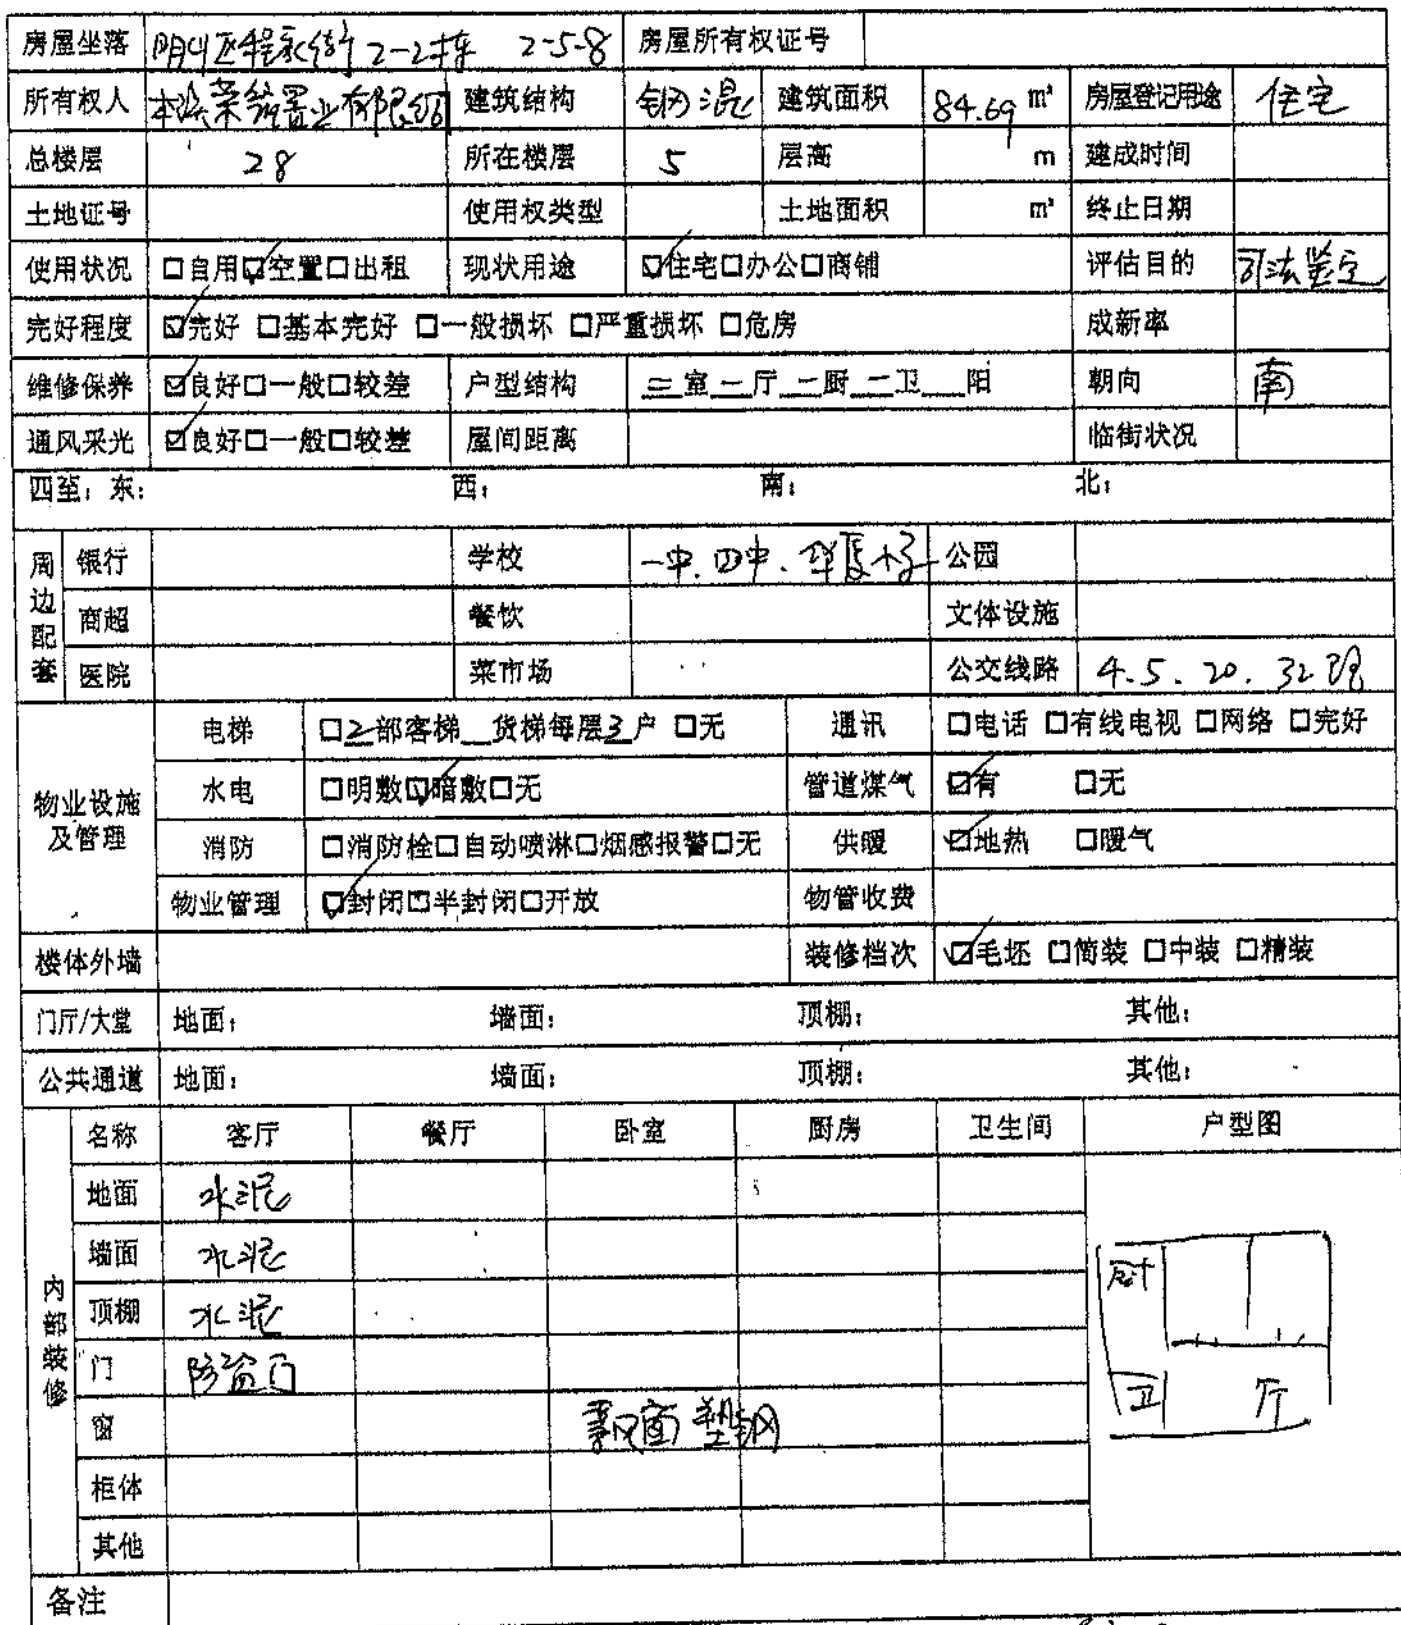 房屋坐落 明山区程家街 2-2栋 2-5-8 房屋所有权证号
所有权人 本溪荣 置业有限公司 建筑结构 钢混 建筑面积 84.69 m² 房屋登记用途 住宅
总楼层 28 所在楼层 5 层高 m 建成时间
土地证号 使用权类型 土地面积 m² 终止日期
使用状况 □自用☑空置□出租 现状用途 ☑住宅□办公□商铺 评估目的 司法鉴定
完好程度 ☑完好 □基本完好 □一般损坏 □严重损坏 □危房 成新率
维修保养 ☑良好□一般□较差 户型结构 三室一厅一厨二卫__阳 朝向 南
通风采光 ☑良好□一般□较差 屋间距离 临街状况
四至：东： 西： 南： 北：
周边配套 银行 学校 一中、四中、 公园
商超 餐饮 文体设施
医院 菜市场 公交线路 4.5.20.32路
物业设施及管理 电梯 □2部客梯__货梯每层3户 □无 通讯 □电话 □有线电视 □网络 □完好
水电 □明敷☑暗敷□无 管道煤气 ☑有 □无
消防 □消防栓□自动喷淋□烟感报警□无 供暖 ☑地热 □暖气
物业管理 ☑封闭□半封闭□开放 物管收费
楼体外墙 装修档次 ☑毛坯 □简装 □中装 □精装
门厅/大堂 地面： 墙面： 顶棚： 其他：
公共通道 地面： 墙面： 顶棚： 其他：
内部装修 名称 客厅 餐厅 卧室 厨房 卫生间 户型图
地面 水泥
墙面 水泥
顶棚 水泥
门 防盗门
窗 飘窗 塑钢
柜体
其他
厨
卫 厅
备注